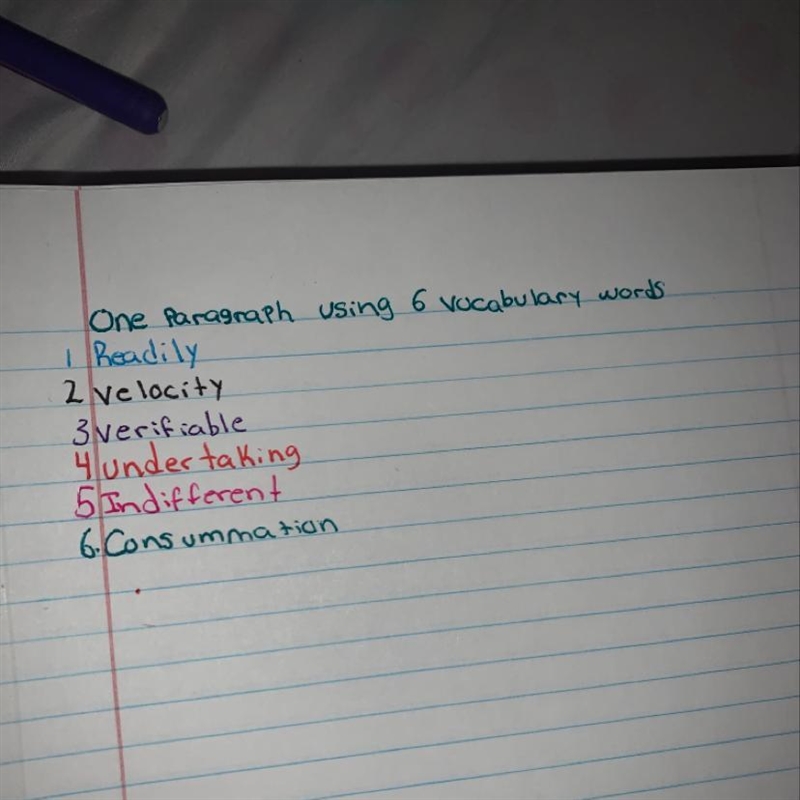 One Paragraph using 6 vocabulary words
1 Readily
2 velocity
3 verifiable
4 undertaking
5 Indifferent
6. Consummation